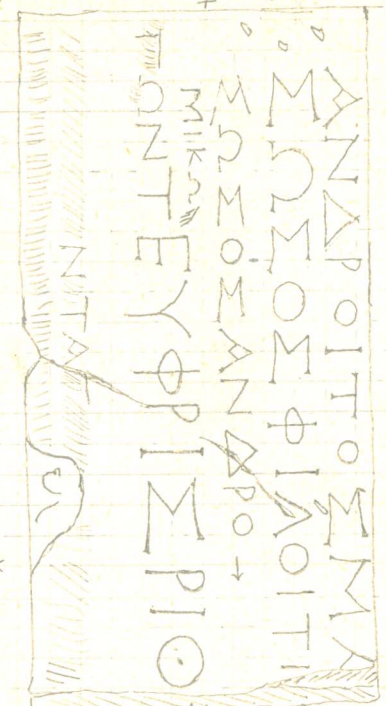 ΑΝΔΡΟΙΤΟΣΜΑ
ΣΩΣΟΣΦΙΛΟΙΤΙ
ΣΩΣΟΣΑΝΔΡΟ→
ΜΙΚΩ
ΤΩΝΤΕΥΦΡΙΣΡΙΘ
ΝΤΑ